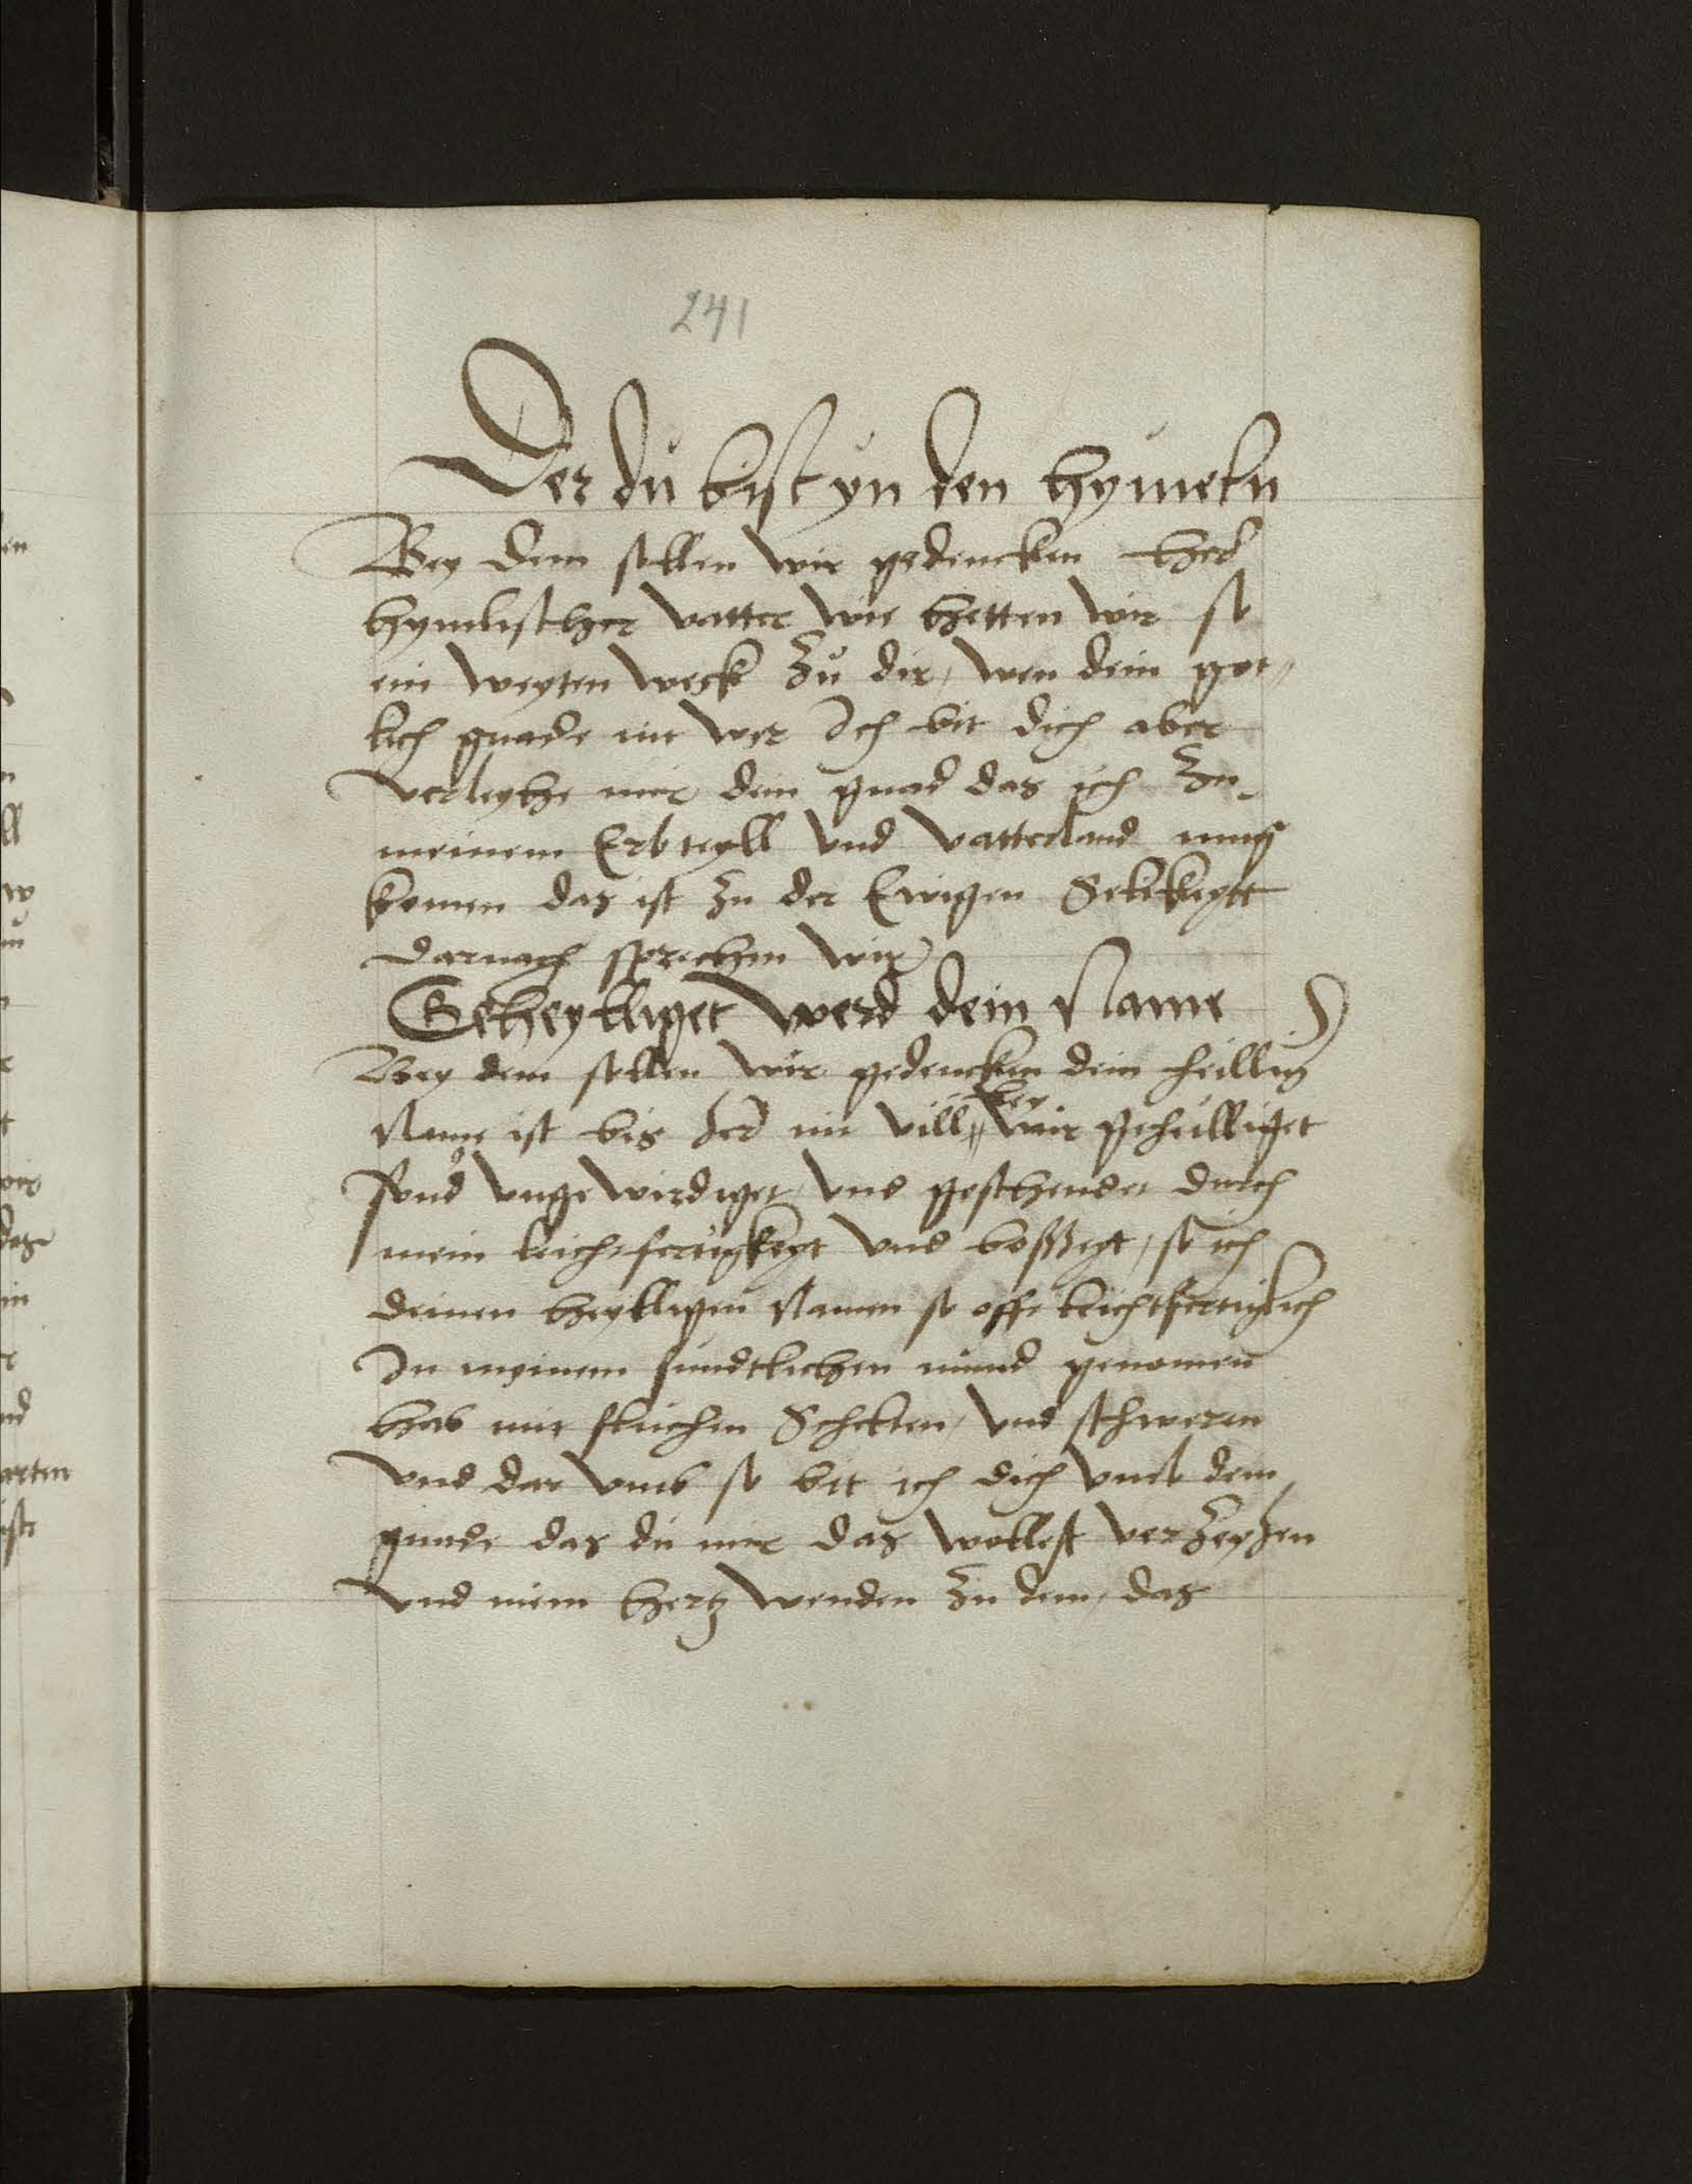 241
Der du bist yn den hymeln
Bey dem sollen wir gedencken Her
hymlischer vatter wie hetten wir so
ein weyten weck zu dir, wen dein got,
lich gnade nit wer Ich bit dich aber
verleyhe mir dein gnad das ich zu
meinem Erbteyll vnd vatterland mug
komen das ist zu der Ewigen Selikeytt
darnach sprechen wir
Geheylliget werd dein Name
Bey dem sollen wir gedencken dein heillig
bey
Name ist bis her nit vill mir geheilliget
sund vngewirdiget vnd geschendet durch
mein leichtfertigkeyt vnd bossheyt, so ich
deinen heylligen Namen so offt leichtfertigklich
In meinem sundtlichen mund genomen
hab mit fluchen Schelten, vnd schweren
vnd dar vmb so bit ich dich vmb dein
gnade das du mir das wollest verzeyhen
vnd mein hertz wenden zu dem, das